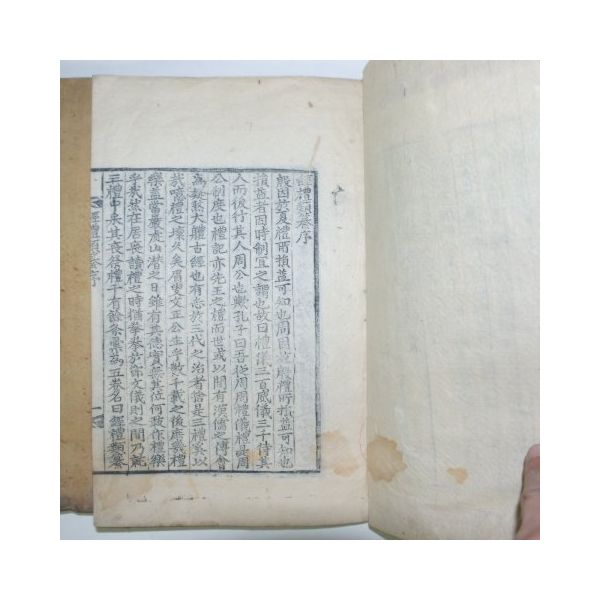 經禮類纂序
殷因於夏禮所損益可知也周因於殷禮所損益可知也
損益者因時制宜之謂也故曰禮儀三百威儀三千待其
人而後行其人周公也歟孔子曰吾從周周禮儀禮皆周
公制度也禮記亦先王之禮而世或以間有漢儒之傅會
為然大體古經也有志於三代之治者舍是三禮其以
哉噫禮之壞久矣眉叟文正公生乎數千載之後慨禮
樂當巖廊山潛之日雖有其德實無其位何敢作禮樂
乎哉然在居喪讀禮之時猶拳拳於節文儀則之間乃就
三禮中來其喪祭禮千有餘條彙為五卷名曰經禮類纂
經禮類纂序
一